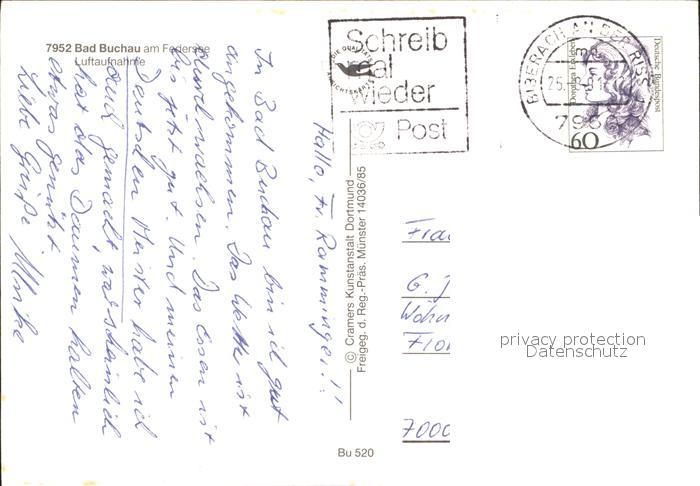 7952 Bad Buchau am Federsee
Luftaufnahme
Schreib
mal
wieder
Post
BIBERACH AN DER RISS
795
60
Deutsche Bundespost
Hallo, Fr. Ramminger!!
In Bad Buchau bin ich gut
angekommen. Das Wetter ist
durchwachsen. Das Essen ist
bis jetzt gut. Und meinen
Deutschen Meister habe ich
auch gemacht, wahrscheinlich
hat das Daumen halten
etwas genützt.
Liebe Grüße Ulrike
© Cramers Kunstanstalt Dortmund
Freigeg. d. Reg.-Präs. Münster 14036/85
Frau
G. J
Wohn
Flor
7000
privacy protection
Datenschutz
Bu 520